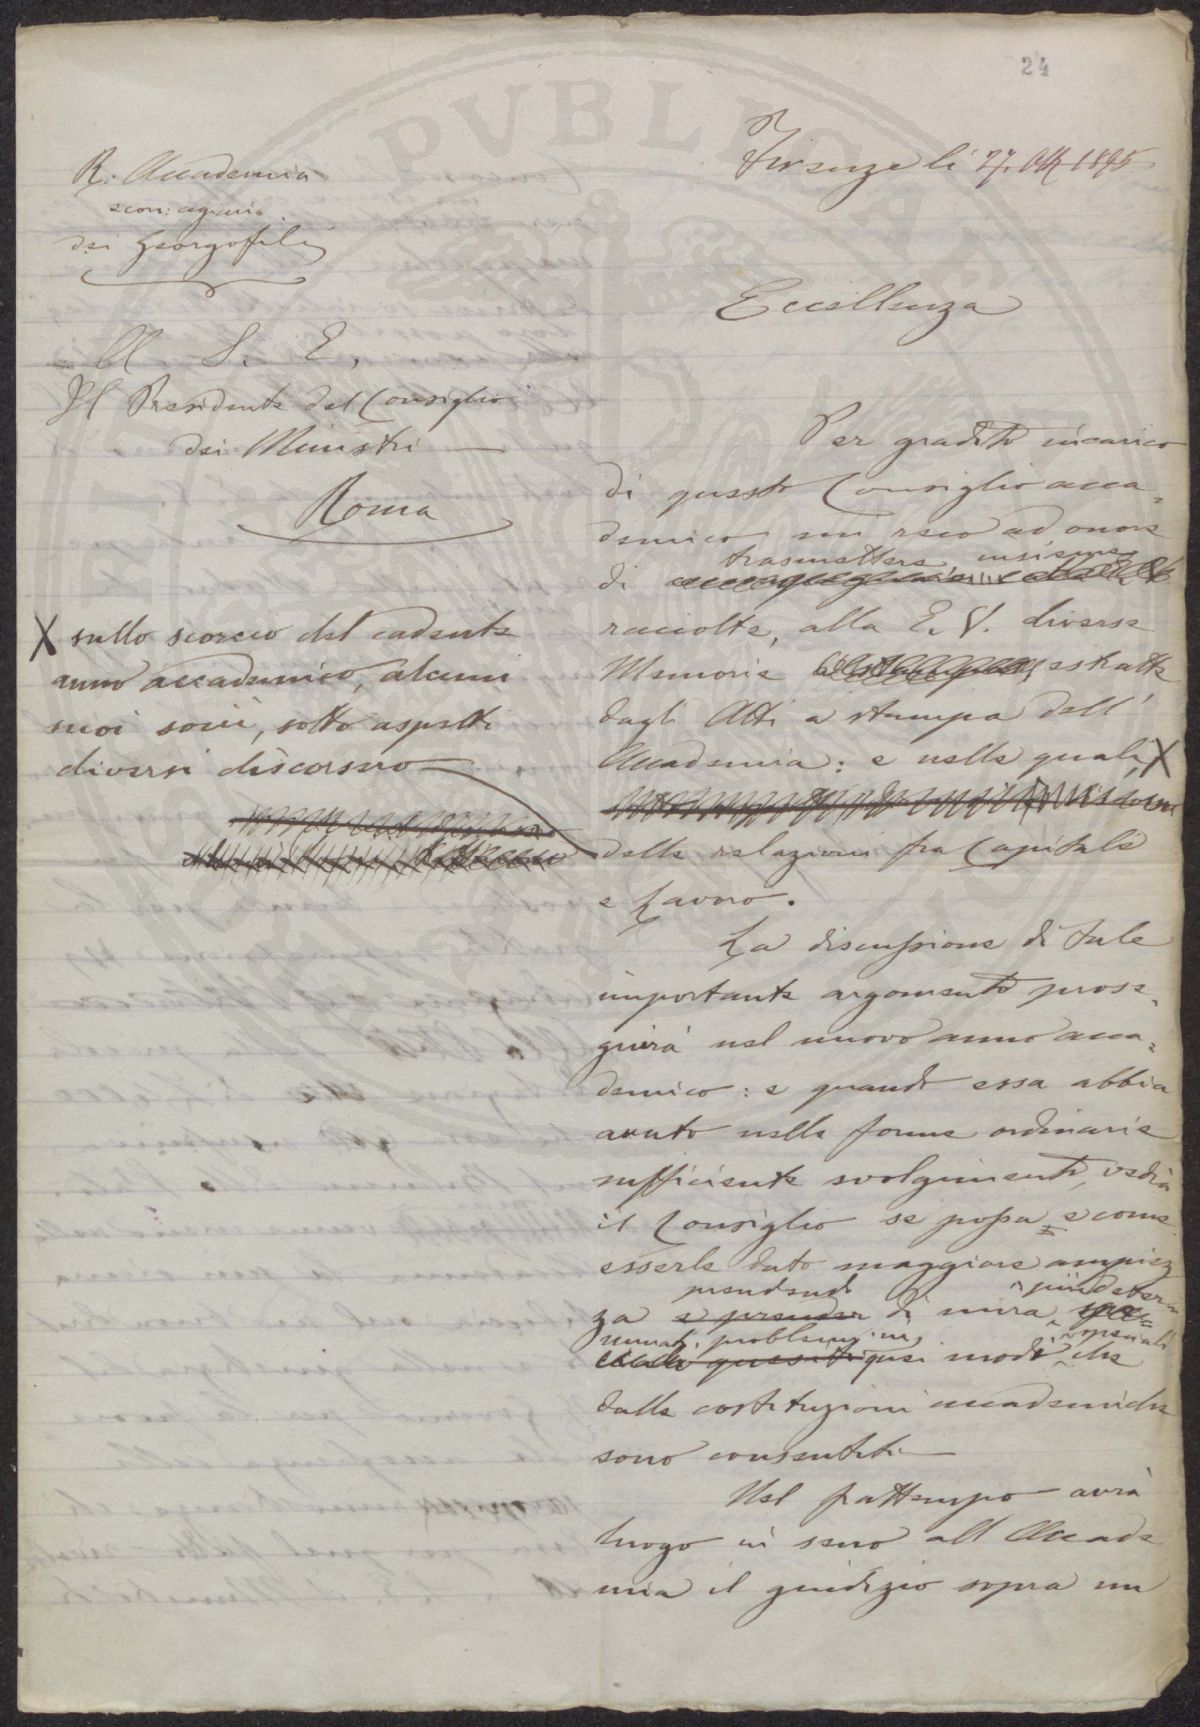 24
Firenze li 27. Ott 1895
R. Accademia
econ: agraria
dei Georgofili
Eccellenza
A S. E.
Il Presidente del Consiglio
dei Ministri
Roma
Per gradito incarico
di questo Consiglio acca=
demico mi reco ad onore
trasmettere insieme
di
raccolte, alla E. V. diverse
Memorie estratte
dagli Atti a stampa dell'
Accademia: e nelle quali X
X sullo scorcio del cadente
anno accademico, alcuni
suoi socii, sotto aspetti
diversi discorsero
delle relazioni fra Capitale
e Lavoro.
La discussione di tale
importante argomento prose=
guirà nel nuovo anno acca=
demico: e quando essa abbia
avuto nelle forme ordinarie
sufficiente svolgimento, vedrà
il Consiglio se possa e come
esserle dato maggiore ampiez
prendendo più deter=
za e prender di mira
minati problemi, in speciali
quesiti quei modi che
dalle costituzioni accademiche
sono consentiti
Nel frattempo avrà
luogo in seno all'Accade
mia il giudizio sopra un